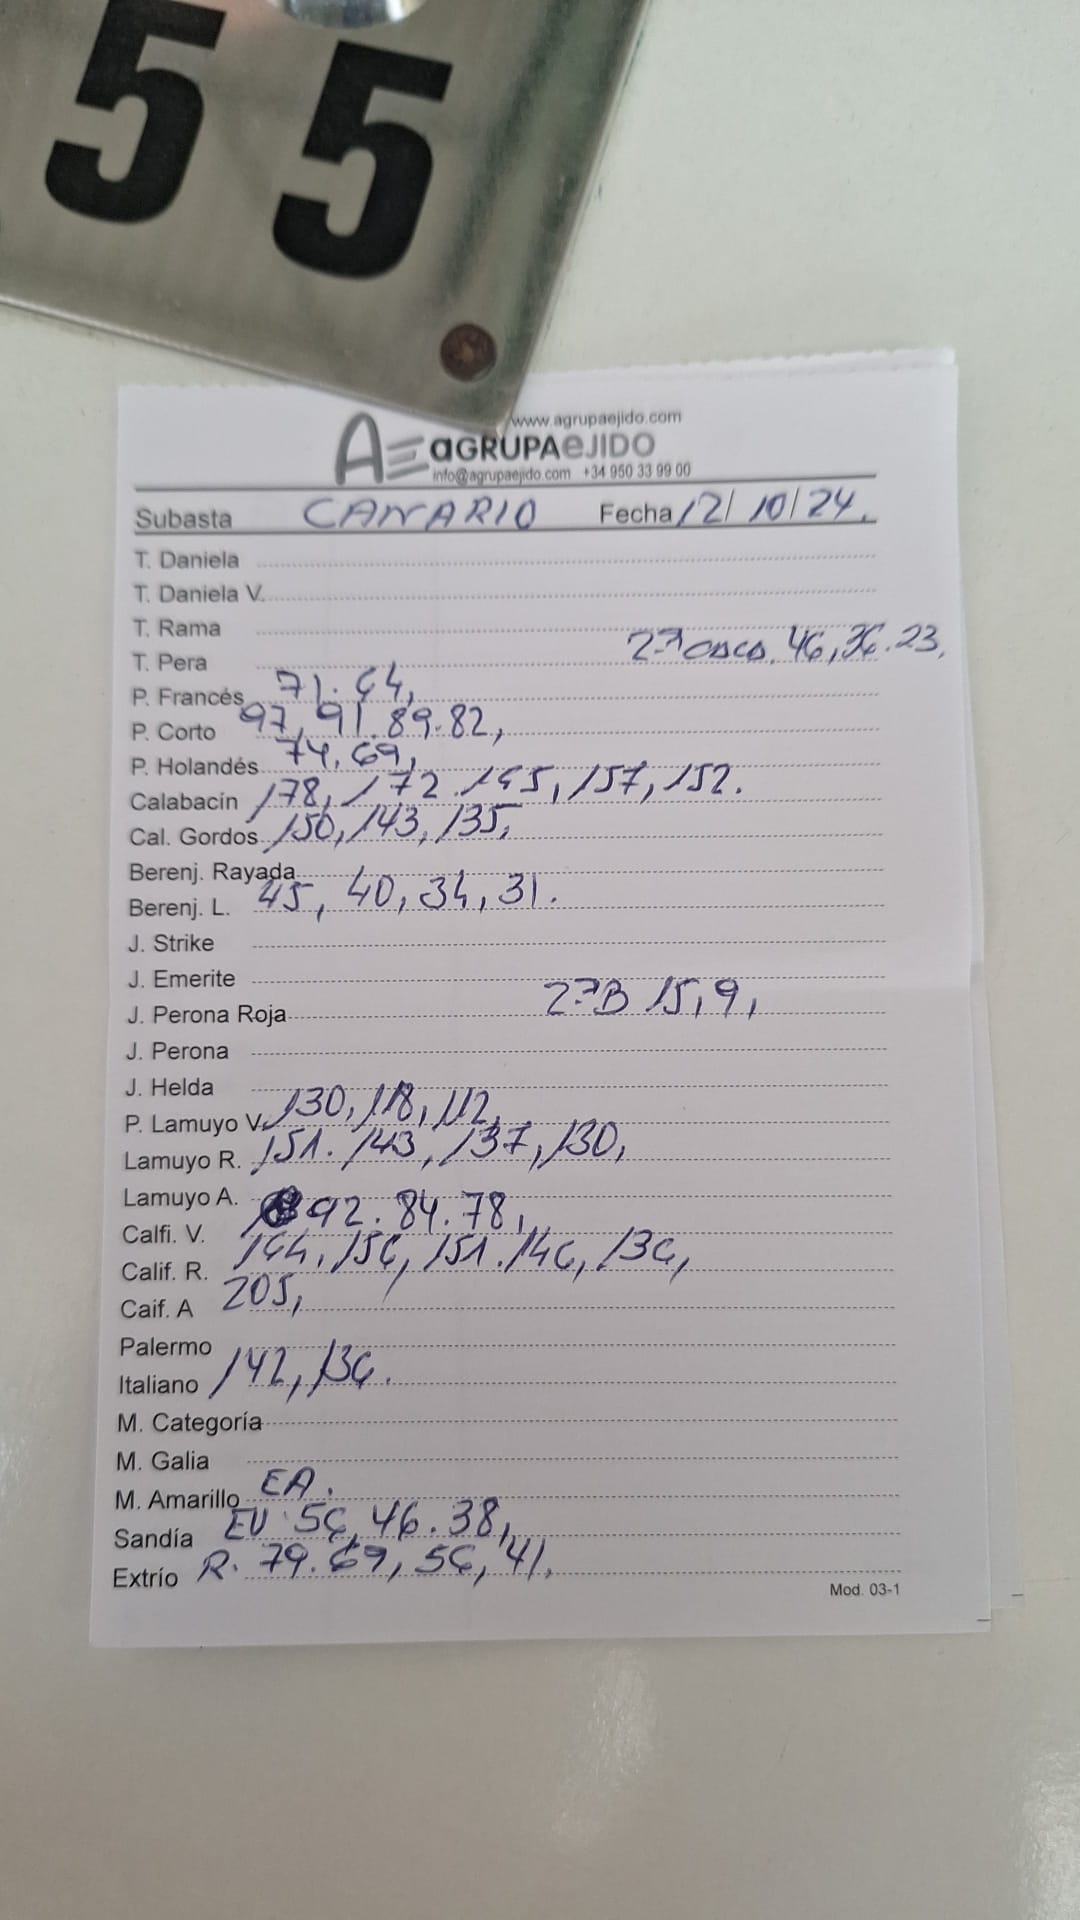 55
www.agrupaejido.com
AE aGRUPAeJIDO
info@agrupaejido.com +34 950 33 99 00
Subasta CANARIO Fecha 12/10/24.
T. Daniela
T. Daniela V.
T. Rama
T. Pera 46, 36. 23,
P. Francés 71. 64,
P. Corto 97, 91. 89. 82,
P. Holandés 74, 69,
Calabacín 178, 172. 165, 157, 152.
Cal. Gordos 150, 143, 135,
Berenj. Rayada
Berenj. L. 45, 40, 34, 31.
J. Strike
J. Emerite
J. Perona Roja 2ªB 15, 9,
J. Perona
J. Helda
P. Lamuyo V. 130, 118, 112,
Lamuyo R. 151. 143, 137, 130,
Lamuyo A.
Calfi. V. 92. 84. 78,
Calif. R. 164, 156, 151. 146, 136,
Caif. A 205,
Palermo
Italiano 142, 136.
M. Categoría
M. Galia
M. Amarillo EA.
Sandía EV 56, 46. 38,
Extrío R. 79. 69, 56, 41.
Mod. 03-1